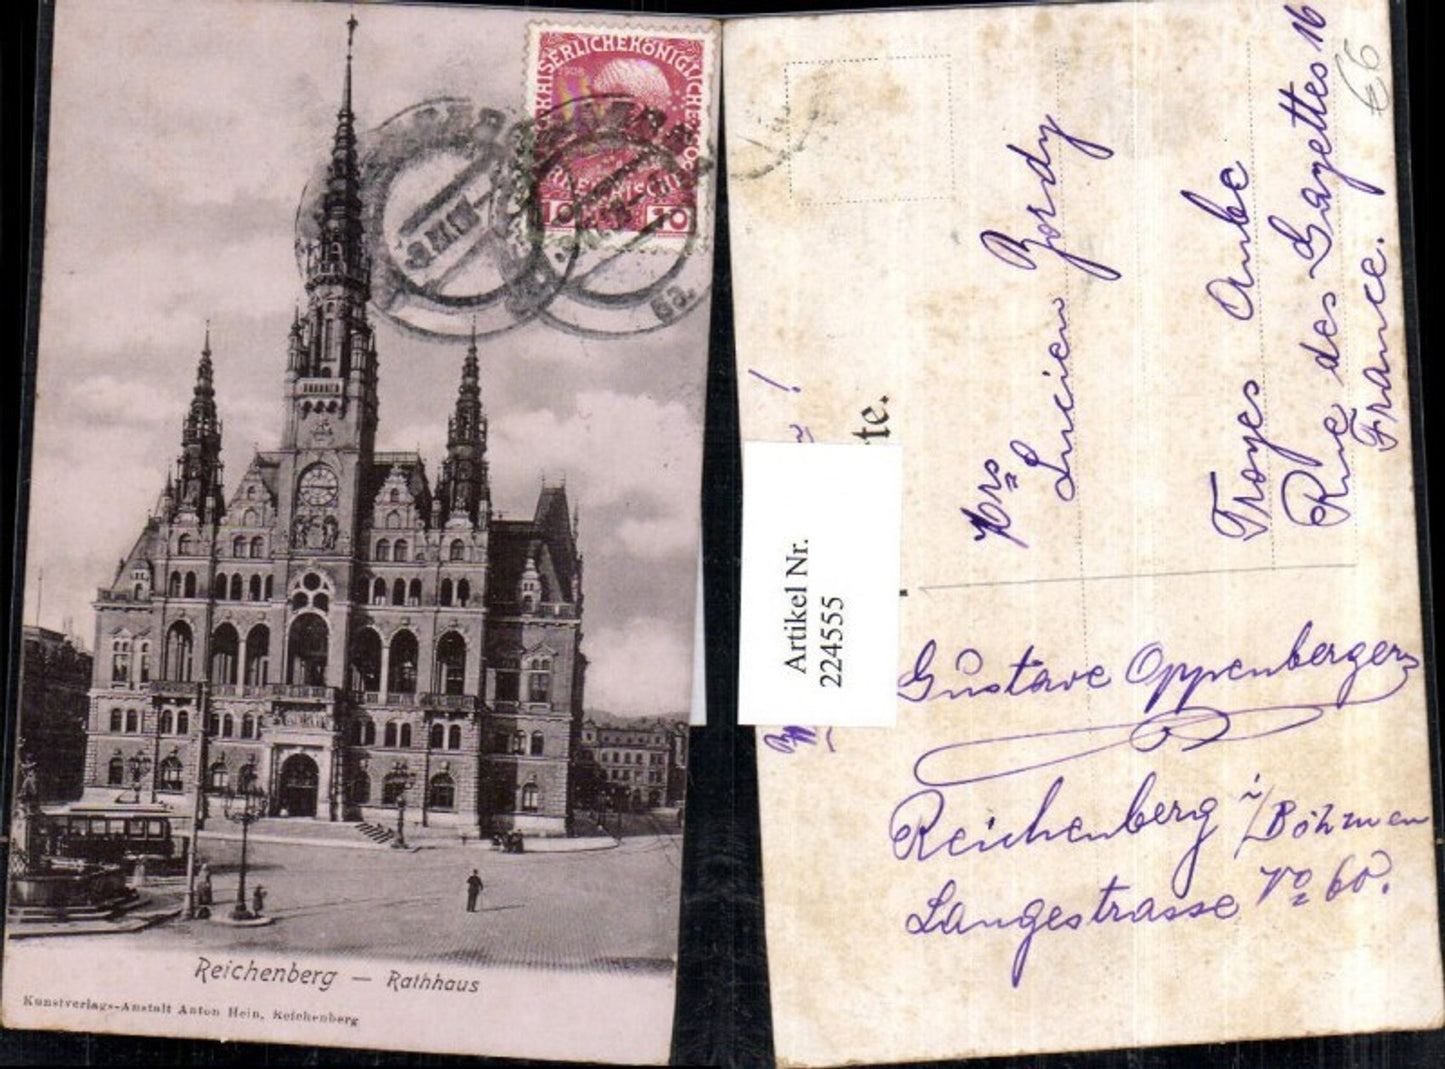 KAISERLICHE KÖNIGLICHE
10 10
6a.
Reichenberg — Rathhaus
Kunstverlags-Anstalt Anton Hein, Reichenberg
te.
Artikel Nr.
224555
Lucien Bordy
Troyes Aube
Rue des Gayettes 16
France.
€6
Gustave Oppenberger
Reichenberg i/Böhmen
Langestrasse No 60.